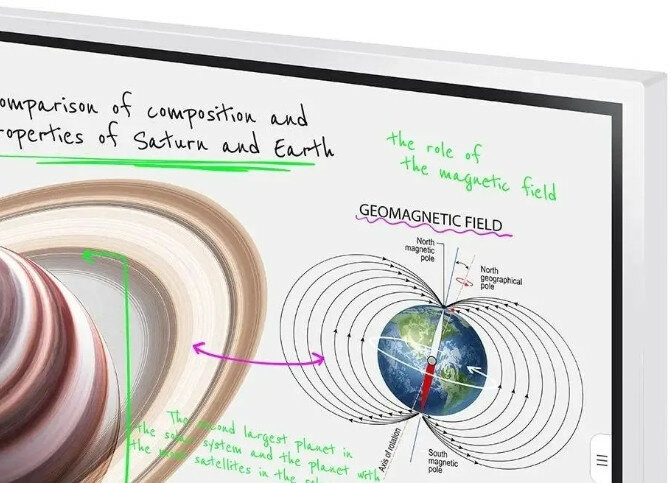 omparison of composition and
roperties of Saturn and Earth
the role of
the magnetic field
GEOMAGNETIC FIELD
North
magnetic
pole
North
geographical
pole
The second largest planet in
the solar system and the planet with
the most satellites in the sol
Axis of rotation
South
magnetic
pole